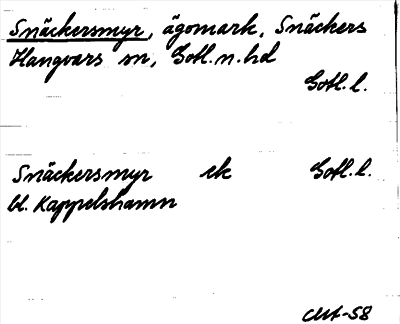 Snäckersmyr, ägomark, Snäckers
Hangvars sn, Gotl. n. hd
Gotl. l.
Snäckersmyr ek Gotl. l.
bl. Kappelshamn
CMA-58